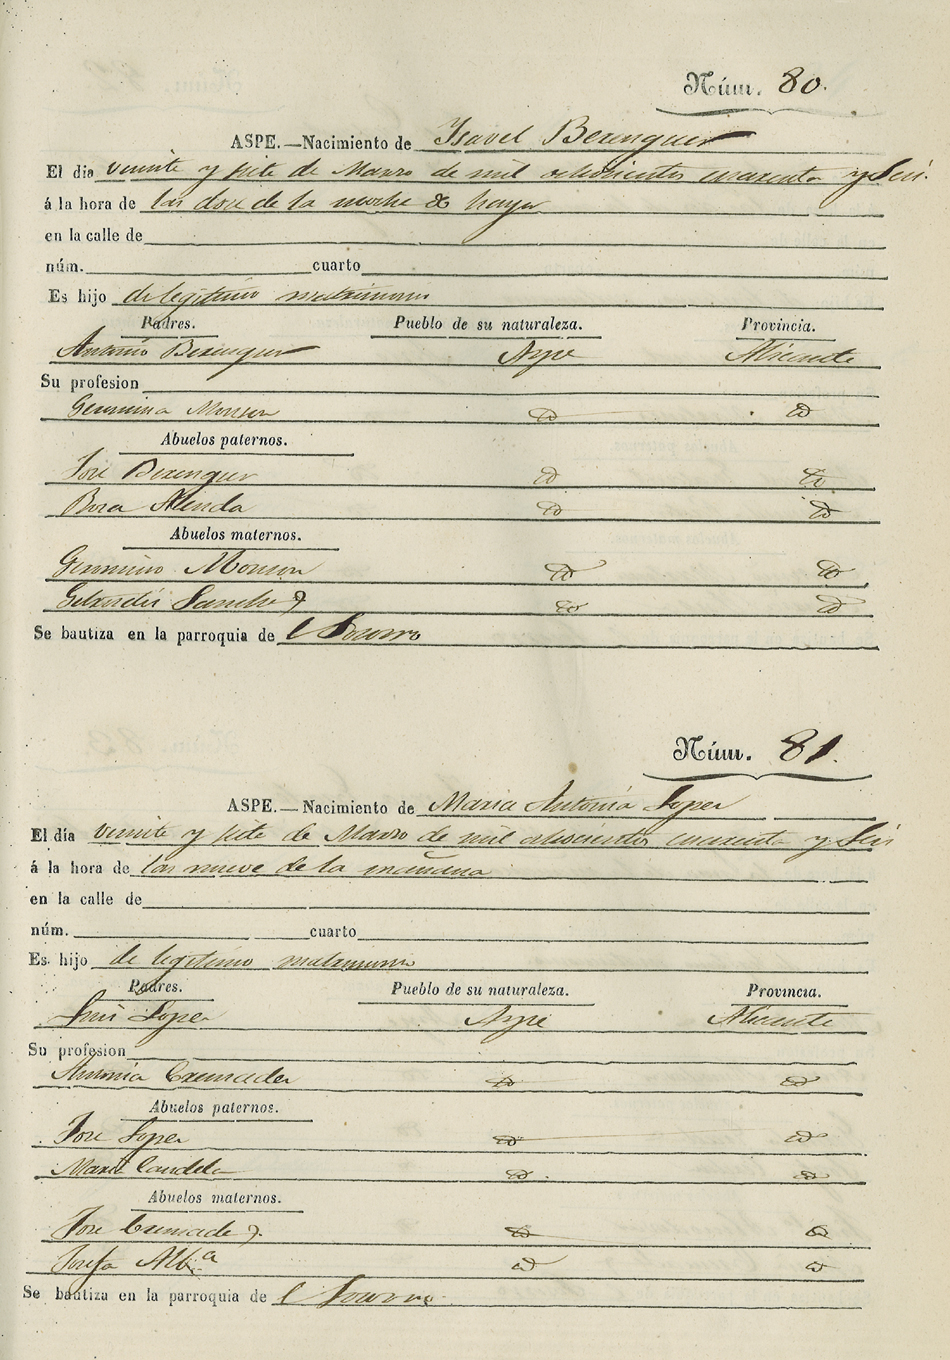 Núm. 80.
ASPE.—Nacimiento de Ysavel Berenguer
El día veinte y siete de Marzo de mil ochosientos cuarenta y Seis.
á la hora de las doce de la noche de hayer
en la calle de
núm. cuarto
Es hijo de legitimo matrimonio
Padres. Pueblo de su naturaleza. Provincia.
Antonio Berenguer Aspe Alicante
Su profesion
Geronima Monzon id id
Abuelos paternos.
José Berenguer id id
Rosa Alenda id id
Abuelos maternos.
Geronimo Monzon id id
Sanchez id id
Se bautiza en la parroquia de l Socorro
Núm. 81.
ASPE.—Nacimiento de Maria Antonia Lopez
El día veinte y siete de Marzo de mil ochosientos cuarenta y Seis
á la hora de las nueve de la mañana
en la calle de
núm. cuarto
Es hijo de legitimo matrimonio
Padres. Pueblo de su naturaleza. Provincia.
Luis Lopez Aspe Alicante
Su profesion
Antonia Cremades id id
Abuelos paternos.
Jose Lopez id id
Maria Candela id id
Abuelos maternos.
Jose Cremades id id
Josefa id id
Se bautiza en la parroquia de l Socorro